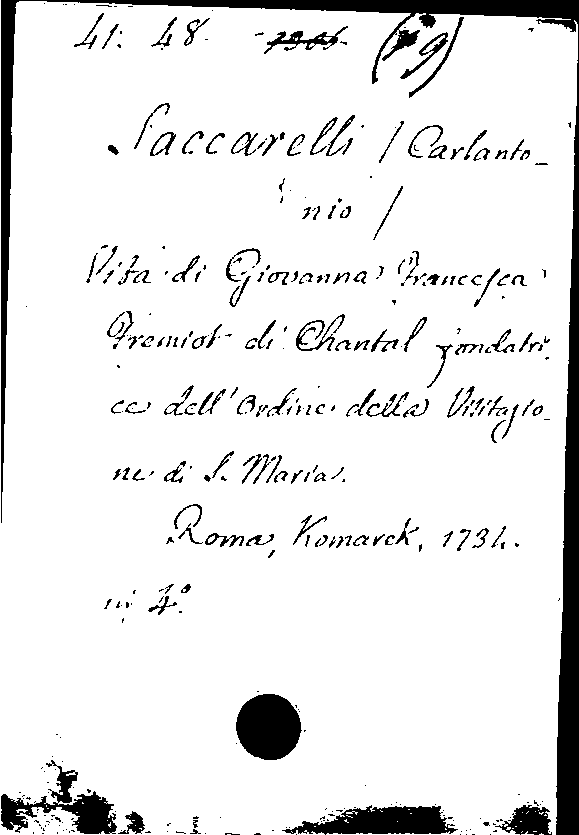 41. 48.
Saccarelli / Carlanto-
nio /
Vita di Giovanna Francesca
Fremiot di Chantal fondatri-
ce dell'Ordine della Visitazio-
ne di S. Maria.
Roma, Komarek, 1734.
in 4º